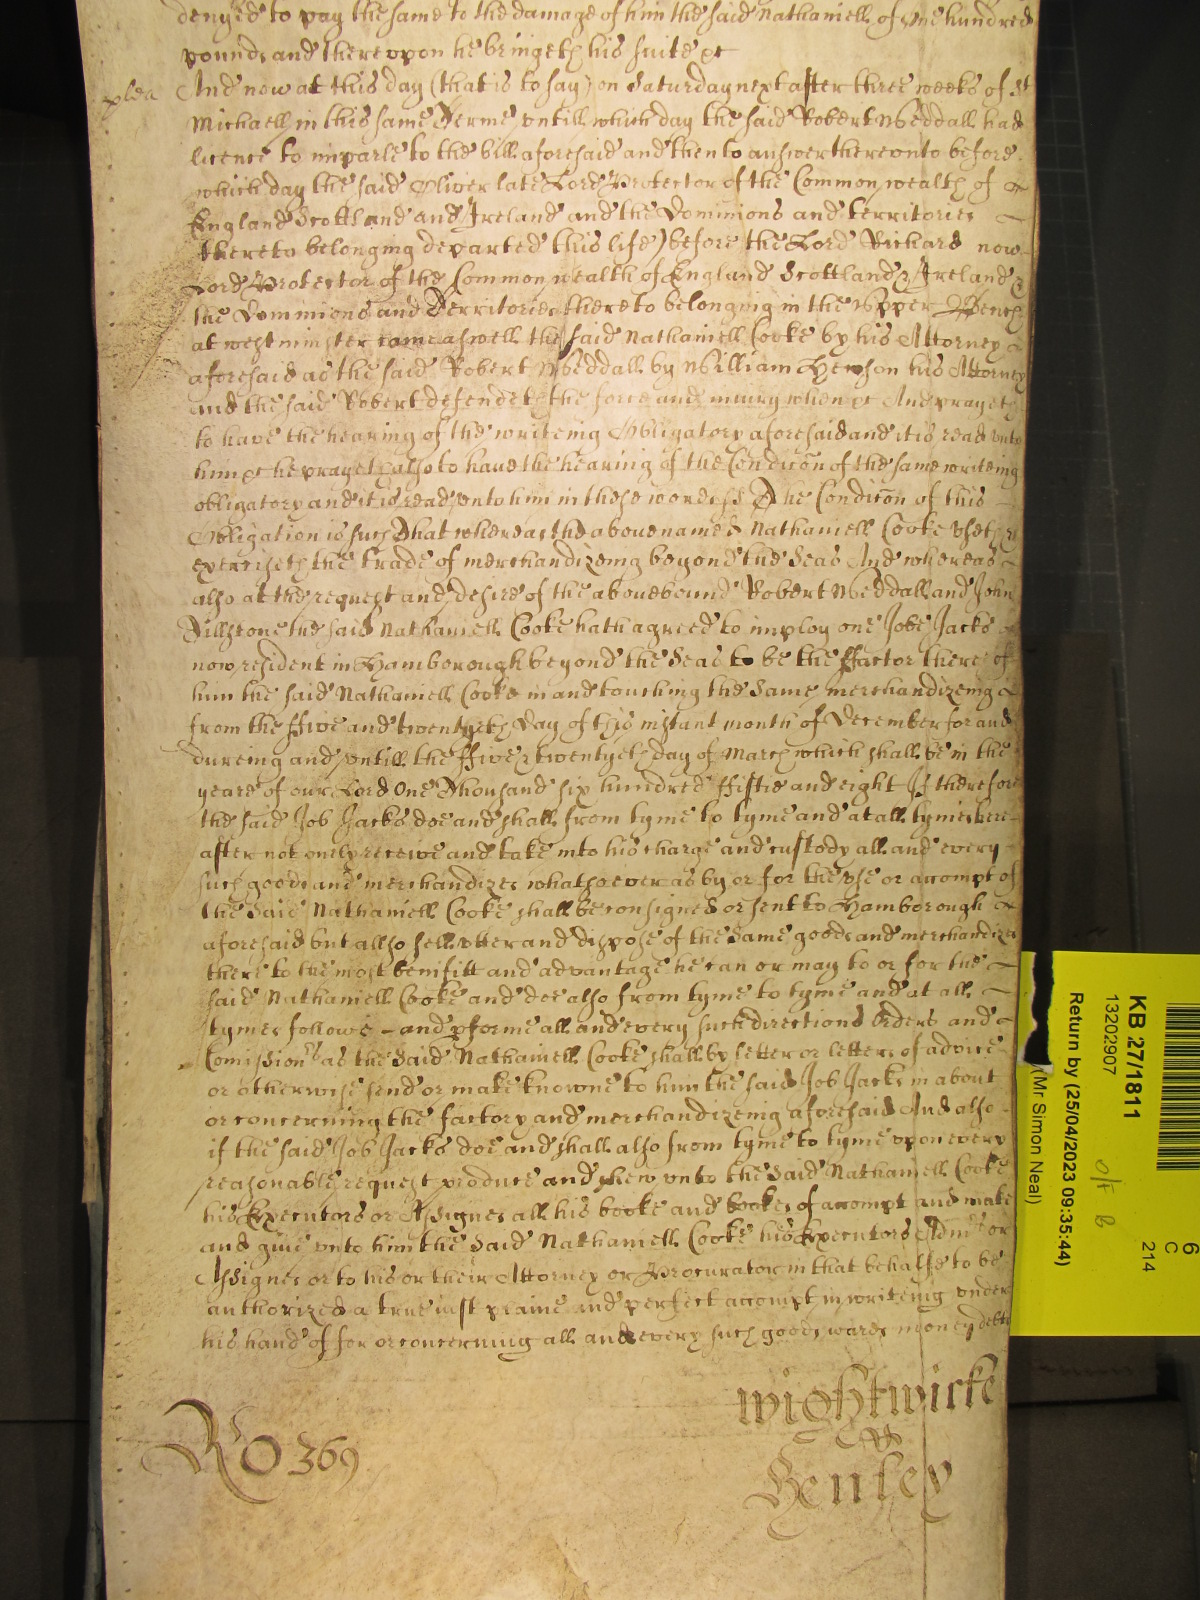 denyed to pay the same to the damage of him the said Nathaniell of one hundred
pounds and thereupon he bringeth his suite &c
plea
And now at this day (that is to say) on Saturday next after three weeks of St
Michaell in this same Terme untill which day the said Robert Weddall had
licence to imparle to the bill aforesaid and then to answer thereunto before
which day the said Oliver late Lord Protector of the Common wealth of
England Scottland and Ireland and the Dominions and territories
thereto belonging departed this life) before the Lord Richard now
Lord Protector of the Common wealth of England Scottland & Ireland &
the Dominions and Territories thereto belonging in the Upper Bench
at westminster came aswell the said Nathaniell Cooke by his Attorney
aforesaid as the said Robert Weddall by William Henson his Attorney
and the said Robert defendeth the force and iniury when &c And prayeth
to have the hearing of the writeing Obligatory aforesaid and it is read unto
him &c he prayeth also to have the hearing of the Condicōn of the same writeing
obligatory and it is read unto him in these words ss The Condicōn of this
Obligation is such That whereas the abovenamed Nathaniell Cooke useth &
exerciseth the trade of merchandizeing beyond the Seas And whereas
also at the request and desire of the abovebound Robert Weddall and John
Tillstone the said Nathaniell Cooke hath agreed to imploy one Jobe Jacks
now resident in Hamborough beyond the Seas to be the ffactor there of
him the said Nathaniell Cooke in and touching the Same merchandizeing
from the ffive and twentyeth day of this instant month of December for and
dureing and untill the ffive & twentyeth day of March which shall be in the
yeare of our Lord One Thousand six hundred ffiftie and eight If therefore
the said Job Jacks doe and shall from tyme to tyme and at all tymes here
after not onely receive and take into his charge and custody all and every
such goods and merchandizes whatsoever as by or for the use or accompt of
the Said Nathaniell Cooke shall be consigned or sent to Hamborough
aforesaid but allso sell utter and dispose of the Same goods and merchandizes
there to the most benifitt and advantage he can or may to or for the
said Nathaniell Cooke and doe also from tyme to tyme and at all
tymes followe and pforme all and every such directions Orders and
Comissions as the Said Nathaniell Cooke shall by letter or letters of advice
or otherwise send or make knowne to him the said Job Jacks in about
or concerning the factory and merchandizeing aforesaid And also
if the said Job Jacks doe and shall also from tyme to tyme upon every
reasonable request produce and shew unto the Said Nathaniell Cooke
his Executors or Assignes all his booke and bookes of accompt and make
and give unto him the Said Nathaniell Cooke his Executors Admrs or
Assignes or to his or their Attorney or Procurator in that behalfe to be
authorized a true iust plaine and perfect accompt in writeing under
his hand of for or concerning all and every such goods wares money debts
Ro 369
Wightwicke
Henley
KB 27/1811
13202907
Return by (25/04/2023 09:35:44)
(Mr Simon Neal)
O/F B
6
C
214